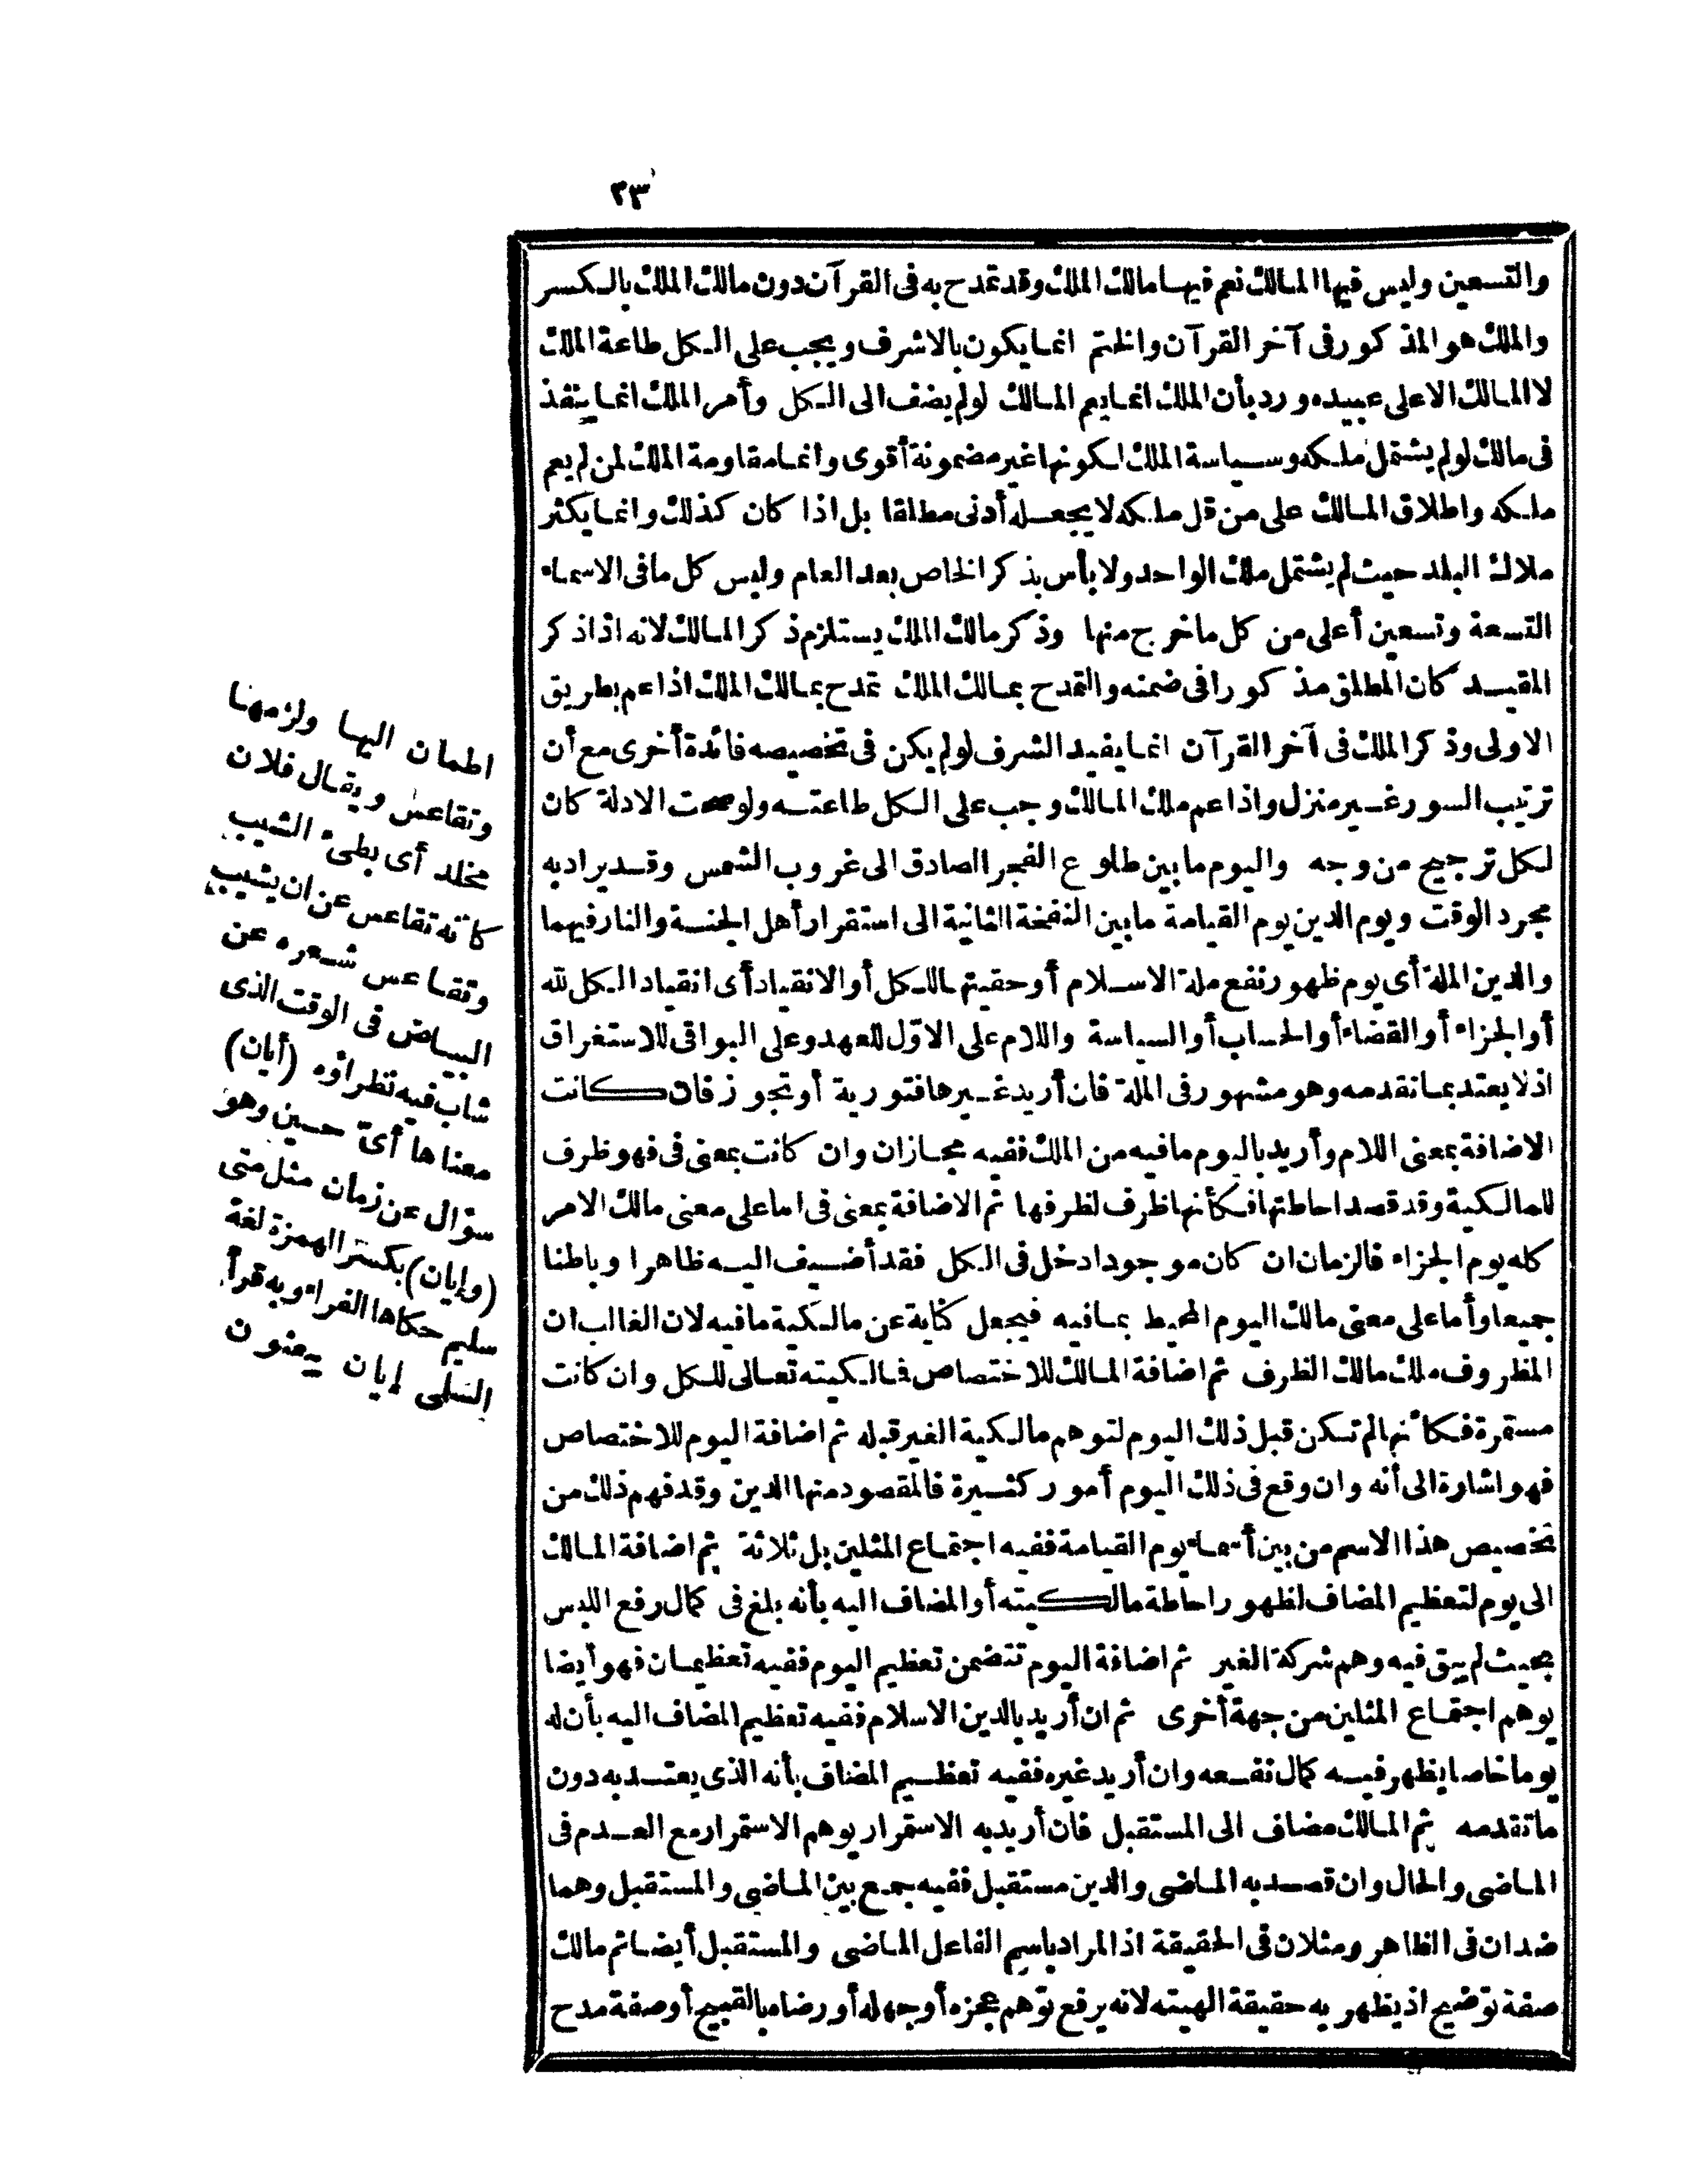 ٢٣
والتسعين وليس فيها المالك نعم فيها مالك الملك وقد تمدح به فى القرآن دون مالك الملك بالكسر
والملك هو المذكور فى آخر القرآن والختم انما يكون بالاشرف ويجب على الكل طاعة الملك
لا المالك الاعلى عبيده ورد بأن الملك انما يعم المالك لولم يضف الى الكل وأمر الملك انما ينفذ
فى مالك لولم يشتمل ملكه وسياسة الملك لكونها غير مضمونة أقوى وانما مقاومة الملك لمن لم يعم
ملكه واطلاق المالك على من قل ملكه لا يجعله أدنى مطلقا بل اذا كان كذلك وانما يكثر
ملاك البلد حيث لم يشتمل ملك الواحد ولا بأس بذكر الخاص بعد العام وليس كل مافى الاسماء
التسعة وتسعين أعلى من كل ماخرج منها وذكر مالك الملك يستلزم ذكر المالك لانه اذا ذكر
المقيد كان المطلق مذكورا فى ضمنه والتمدح بمالك الملك تمدح بمالك الملك اذا عم بطريق
الاولى وذكر الملك فى آخر القرآن انما يفيد الشرف لولم يكن فى تخصيصه فائدة أخرى مع أن
ترتيب السور غير منزل واذا عم ملك المالك وجب على الكل طاعته ولو صحت الادلة كان
لكل ترجيح من وجه واليوم ما بين طلوع الفجر الصادق الى غروب الشمس وقد يراد به
مجرد الوقت ويوم الدين يوم القيامة ما بين النفخة الثانية الى استقرار أهل الجنة والنار فيهما
والدين الملة أى يوم ظهور نفع ملة الاسلام أو حقيتها للكل أو الانقياد أى انقياد الكل لله
أو الجزاء أو القضاء أو الحساب أو السياسة واللام على الاوّل للعهد وعلى البواقى للاستغراق
اذ لا يعتد بما تقدمه وهو مشهور فى الملة فان أريد غيرها فتورية أو تجوز فان كانت
الاضافة بمعنى اللام وأريد باليوم ما فيه من الملك ففيه مجازان وان كانت بمعنى فى فهو ظرف
للمالكية وقد قصد احاطتها فكأنها ظرف لظرفها ثم الاضافة بمعنى فى اما على معنى مالك الامر
كله يوم الجزاء فالزمان ان كان موجودا دخل فى الكل فقد أضيف اليه ظاهرا وباطنا
جميعا وأما على معنى مالك اليوم المحيط بمافيه فيجعل كناية عن مالكية مافيه لان الغالب ان
المظروف ملك مالك الظرف ثم اضافة المالك للاختصاص فمالكيته تعالى للكل وان كانت
مستمرة فكأنها لم تكن قبل ذلك اليوم لتوهم مالكية الغير قبله ثم اضافة اليوم للاختصاص
فهو اشارة الى أنه وان وقع فى ذلك اليوم أمور كثيرة فالمقصود منها الدين وقد فهم ذلك من
تخصيص هذا الاسم من بين أسماء يوم القيامة ففيه اجتماع المثلين بل ثلاثة ثم اضافة المالك
الى يوم لتعظيم المضاف لظهور احاطة مالكيته أو المضاف اليه بأنه بلغ فى كمال رفع اللبس
بحيث لم يبق فيه وهم شركة الغير ثم اضافة اليوم تتضمن تعظيم اليوم ففيه تعظيمان فهو أيضا
يوهم اجتماع المثلين من جهة أخرى ثم ان أريد بالدين الاسلام ففيه تعظيم المضاف اليه بأن له
يوما خاصا يظهر فيه كمال نفعه وان أريد غيره ففيه تعظيم المضاف بأنه الذى يعتد به دون
ماتقدمه ثم المالك مضاف الى المستقبل فان أريد به الاستمرار يوهم الاستمرار مع العدم فى
الماضى والحال وان قصد به الماضى والدين مستقبل ففيه جمع بين الماضى والمستقبل وهما
ضدان فى الظاهر ومثلان فى الحقيقة اذ المراد باسم الفاعل الماضى والمستقبل أيضا ثم مالك
صفة توضيح اذ يظهر به حقيقة الهيته لانه يرفع توهم عجزه أو جهله أو رضاه بالقبيح أو صفة مدح
اطمان اليها ولزمها
وتقاعس ويقال فلان
مخلد أى بطىء الشيب
كأنه تقاعس عن ان يشيب
وتقاعس شعره عن
البياض فى الوقت الذى
شاب فيه نظراؤه (أيان)
معناها أىّ حين وهو
سؤال عن زمان مثل متى
(وإيان) بكسر الهمزة لغة
سليم حكاها الفراء وبه قرأ
السلمى إيان يبعثون